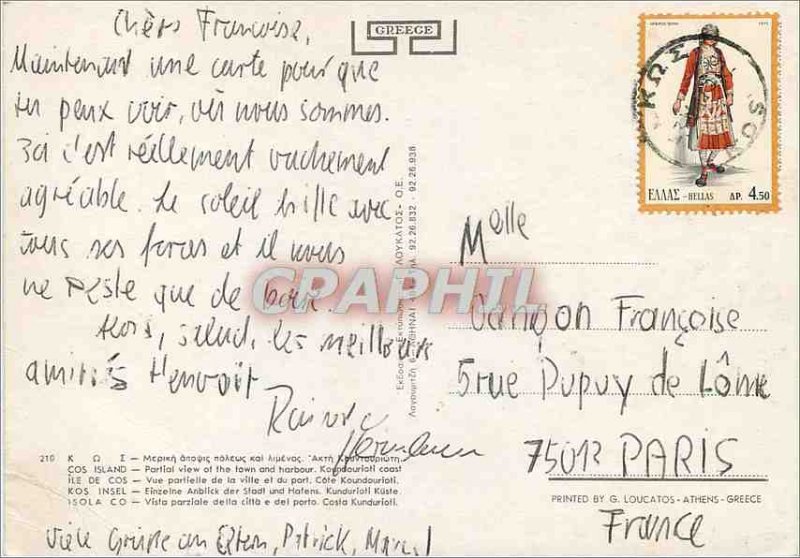 Chère Francoise,
Maintenant une carte pour que
tu peux voir, où nous sommes.
Ici c'est réellement vachement
agréable. Le soleil brille avec
tous ses forces et il nous
ne reste que de boire.
Alors, salud, les meilleurs
amitiés t'envoit
Viele Grüsse an Eltern, Patrick, Marcel
GREECE
ΚΩΣ
ΕΛΛΑΣ - HELLAS ΔΡ. 4.50
ΛΟΥΚΑΤΟΣ - Ο.Ε.
ΑΘΗΝΑΙ 92.26.832 - 92.26.938
Melle
Françoise
5 rue Dupuy de Lôme
75013 PARIS
France
CPARAPHIL
210 ΚΩΣ — Μερική ἄποψις πόλεως καί λιμένος. Ἀκτή Κουντουριώτη
COS ISLAND — Partial view of the town and harbour. Koundourioti coast
ÎLE DE COS — Vue partielle de la ville et du port. Côte Koundourioti.
KOS INSEL — Einzelne Anblick der Stadt und Hafens. Kundurioti Küste.
ISOLA CO — Vista parziale della città e del porto. Costa Kundurioti.
PRINTED BY G. LOUCATOS - ATHENS - GREECE